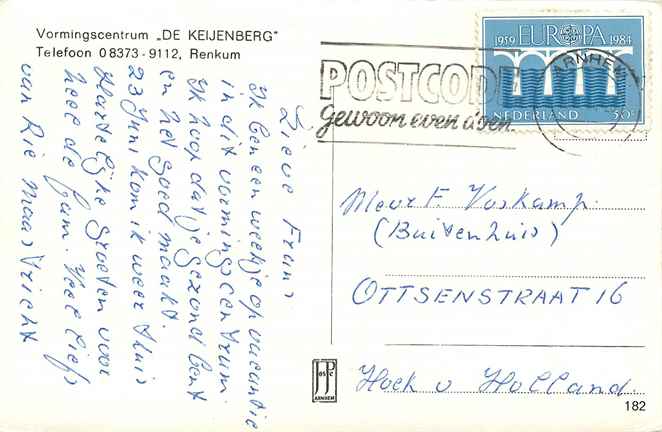 Vormingscentrum „DE KEIJENBERG"
Telefoon 08373-9112, Renkum
Lieve Frans
Ik ben een weekje op vacantie
in dit vormingscentrum.
Ik hoop dat je gezond bent
en het goed maakt.
23 Juni kom ik weer thuis
Hartelijke Groeten voor
heel de fam. Veel liefs
van Rie Maastricht
POSTCODE
gewoon even doen
ARNHEM
1959 EUROPA 1984
NEDERLAND 50c
Mevr F. Voskamp.
(Buitenhuis)
OTTSENSTRAAT 16
Hoek v Holland.
JosPé
ARNHEM
182